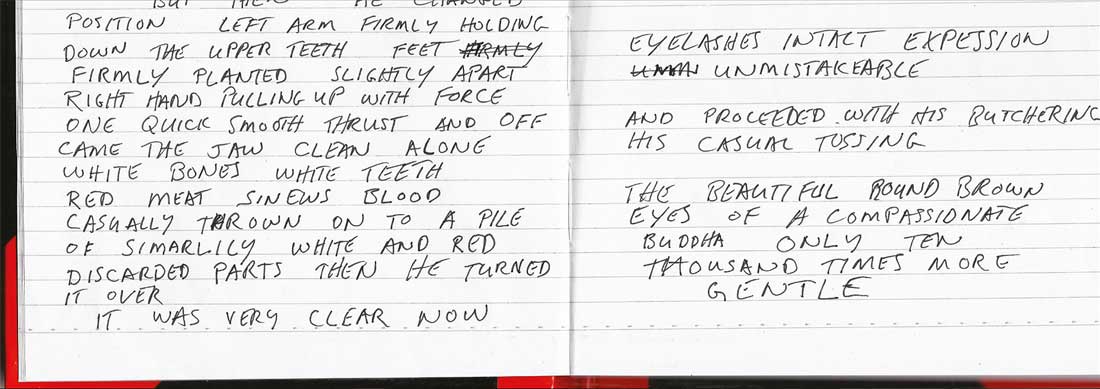 BUT THEN HE CHANGED
POSITION LEFT ARM FIRMLY HOLDING
DOWN THE UPPER TEETH FEET FIRMLY
FIRMLY PLANTED SLIGHTLY APART
RIGHT HAND PULLING UP WITH FORCE
ONE QUICK SMOOTH THRUST AND OFF
CAME THE JAW CLEAN ALONE
WHITE BONES WHITE TEETH
RED MEAT SINEWS BLOOD
CASUALLY THROWN ON TO A PILE
OF SIMARLILY WHITE AND RED
DISCARDED PARTS THEN HE TURNED
IT OVER
IT WAS VERY CLEAR NOW
EYELASHES INTACT EXPESSION
UNMISTAKEABLE
AND PROCEEDED WITH HIS BUTCHERING
HIS CASUAL TOSSING
THE BEAUTIFUL ROUND BROWN
EYES OF A COMPASSIONATE
BUDDHA ONLY TEN
THOUSAND TIMES MORE
GENTLE